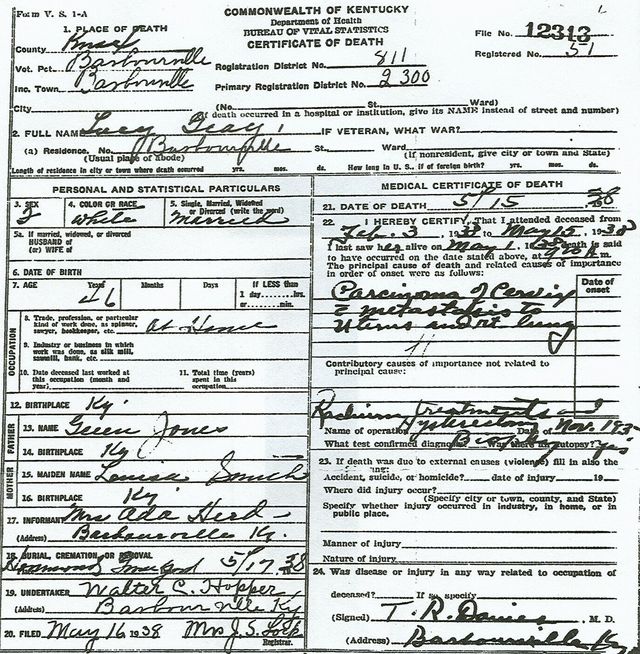 Form V. S. 1-A
COMMONWEALTH OF KENTUCKY
Department of Health
BUREAU OF VITAL STATISTICS
CERTIFICATE OF DEATH
File No. 12313
Registered No. 51
1. PLACE OF DEATH
County Knox
Vot. Pct. Barbourville
Inc. Town Barbourville
Registration District No. 811
Primary Registration District No. 2300
City (No. St. Ward)
(If death occurred in a hospital or institution, give its NAME instead of street and number)
2. FULL NAME Lucy Gray IF VETERAN, WHAT WAR?
(a) Residence. No. Barbourville St. Ward
(Usual place of abode) (If nonresident, give city or town and State)
Length of residence in city or town where death occurred yrs. mos. ds. How long in U. S., if of foreign birth? yrs. mos. ds.
PERSONAL AND STATISTICAL PARTICULARS
3. SEX 4. COLOR OR RACE 5. Single, Married, Widowed
or Divorced (write the word)
F White Married
5a. If married, widowed, or divorced
HUSBAND of
(or) WIFE of
6. DATE OF BIRTH
7. AGE Years Months Days If LESS than
46 1 day hrs.
or min.
OCCUPATION
8. Trade, profession, or particular
kind of work done, as spinner,
sawyer, bookkeeper, etc. At Home
9. Industry or business in which
work was done, as silk mill,
sawmill, bank, etc.
10. Date deceased last worked at
this occupation (month and
year)
11. Total time (years)
spent in this
occupation
12. BIRTHPLACE Ky.
FATHER
13. NAME Green Jones
14. BIRTHPLACE Ky
MOTHER
15. MAIDEN NAME Louisa Smith
16. BIRTHPLACE Ky
17. INFORMANT Mrs Ada Herd
(Address) Barbourville Ky.
18. BURIAL, CREMATION OR REMOVAL
5/17 38
19. UNDERTAKER Walter C. Hopper
(Address) Barbourville Ky
20. FILED May 16 1938 Mrs J. S. Lock
Registrar.
MEDICAL CERTIFICATE OF DEATH
21. DATE OF DEATH 5/15 38
22. I HEREBY CERTIFY, That I attended deceased from
Feb. 3 1938 to May 15, 1938
I last saw her alive on May 1, 1938 death is said
to have occurred on the date stated above, at m.
The principal cause of death and related causes of importance
in order of onset were as follows:
Date of
onset
Carcinoma of Cervix
c metastasis to
Uterus and rt lung
Contributory causes of importance not related to
principal cause:
Radium Treatments and
Name of operation Hysterectomy Date of Nov. 193
What test confirmed diagnosis? Biopsy Was there an autopsy? yes
23. If death was due to external causes (violence) fill in also the
Accident, suicide, or homicide? date of injury 19
Where did injury occur?
(Specify city or town, county, and State)
Specify whether injury occurred in industry, in home, or in
public place.
Manner of injury
Nature of injury
24. Was disease or injury in any way related to occupation of
deceased? If so specify
(Signed) T. R. Davies M. D.
(Address) Barbourville Ky.